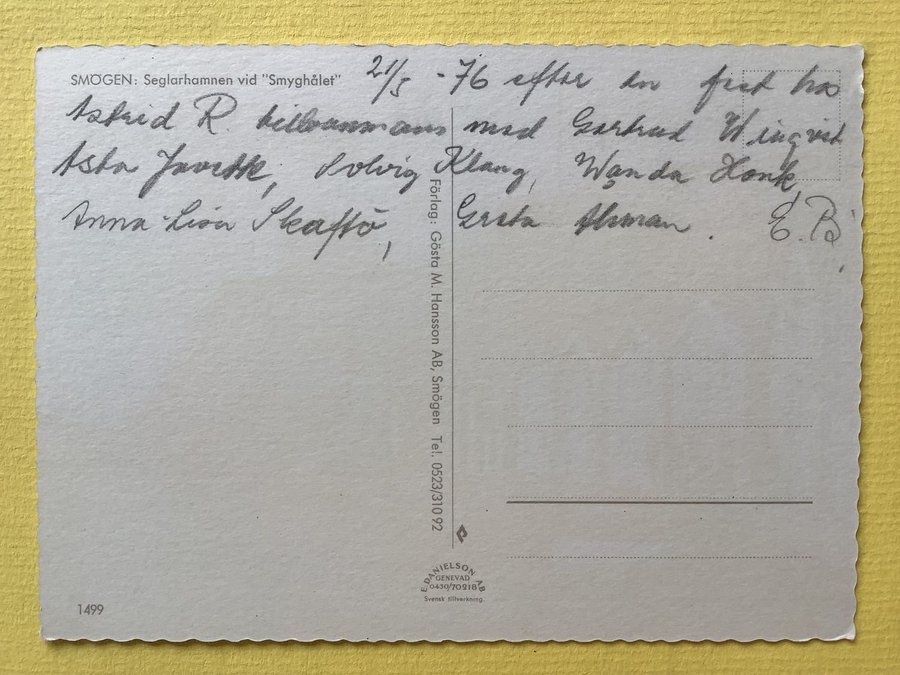 SMÖGEN: Seglarhamnen vid "Smyghålet"
21/5 -76 efter en fest hos
Astrid R. tillsammans med Gertrud Wingvist
Asta, Solvig Klang, Wanda Honk,
Anna-Lisa Skaftö, Greta Ahman. E. B.
Förlag: Gösta M. Hansson AB, Smögen Tel. 0523/310 92
E. DANIELSON AB
GENEVAD
0430/70218
Svensk tillverkning.
1499